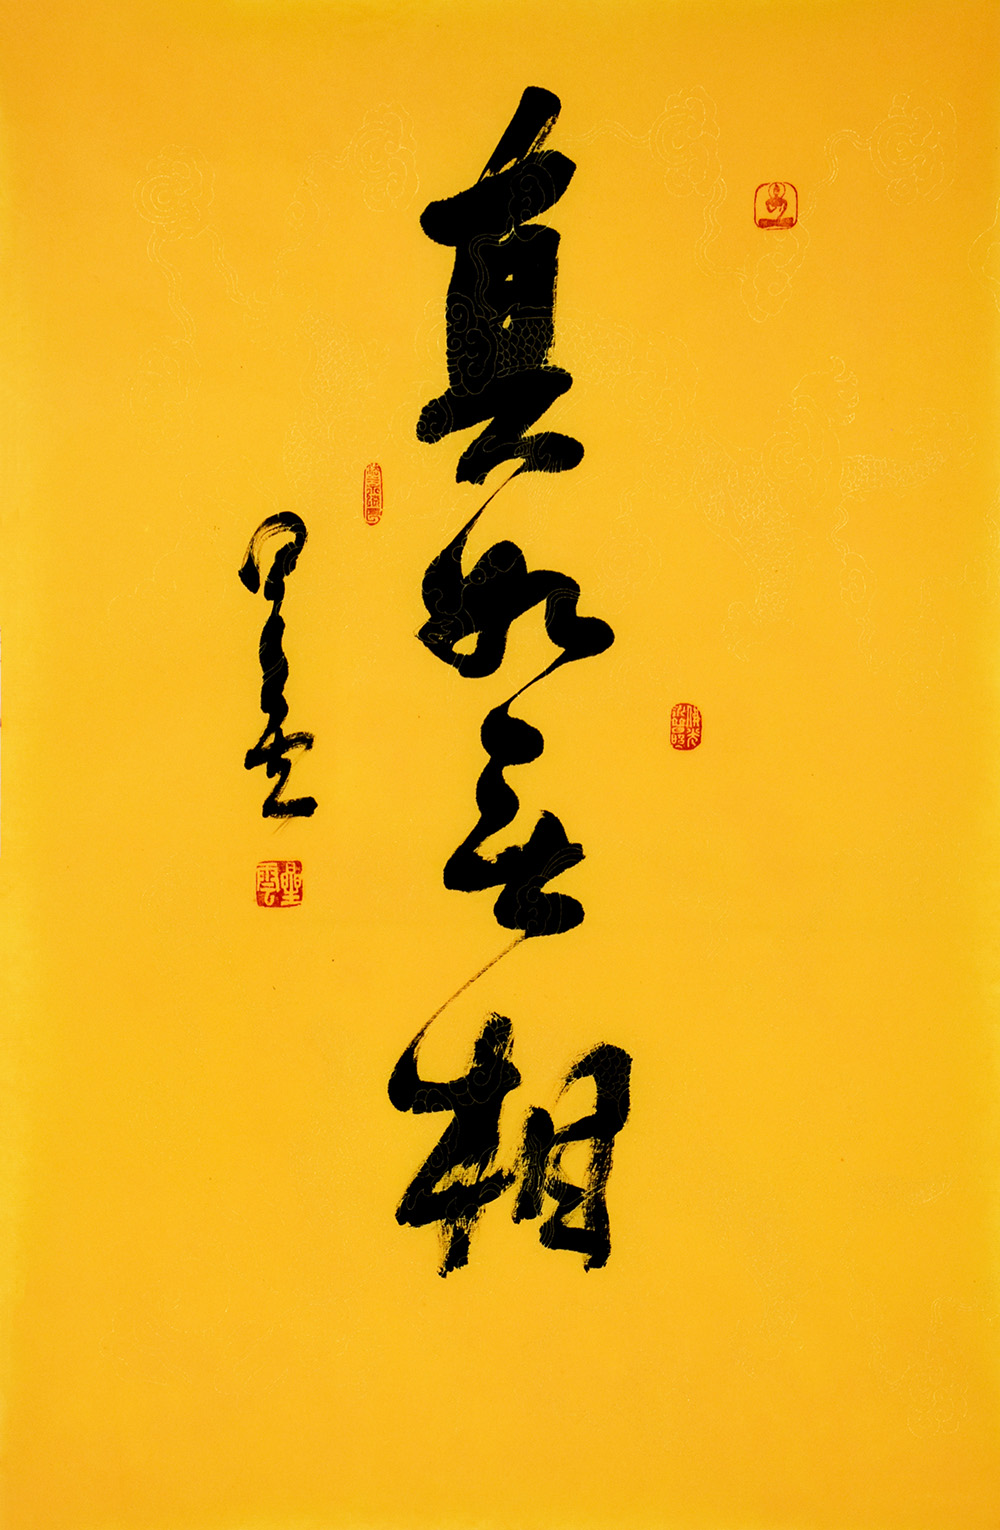 真如無相
星雲
星雲